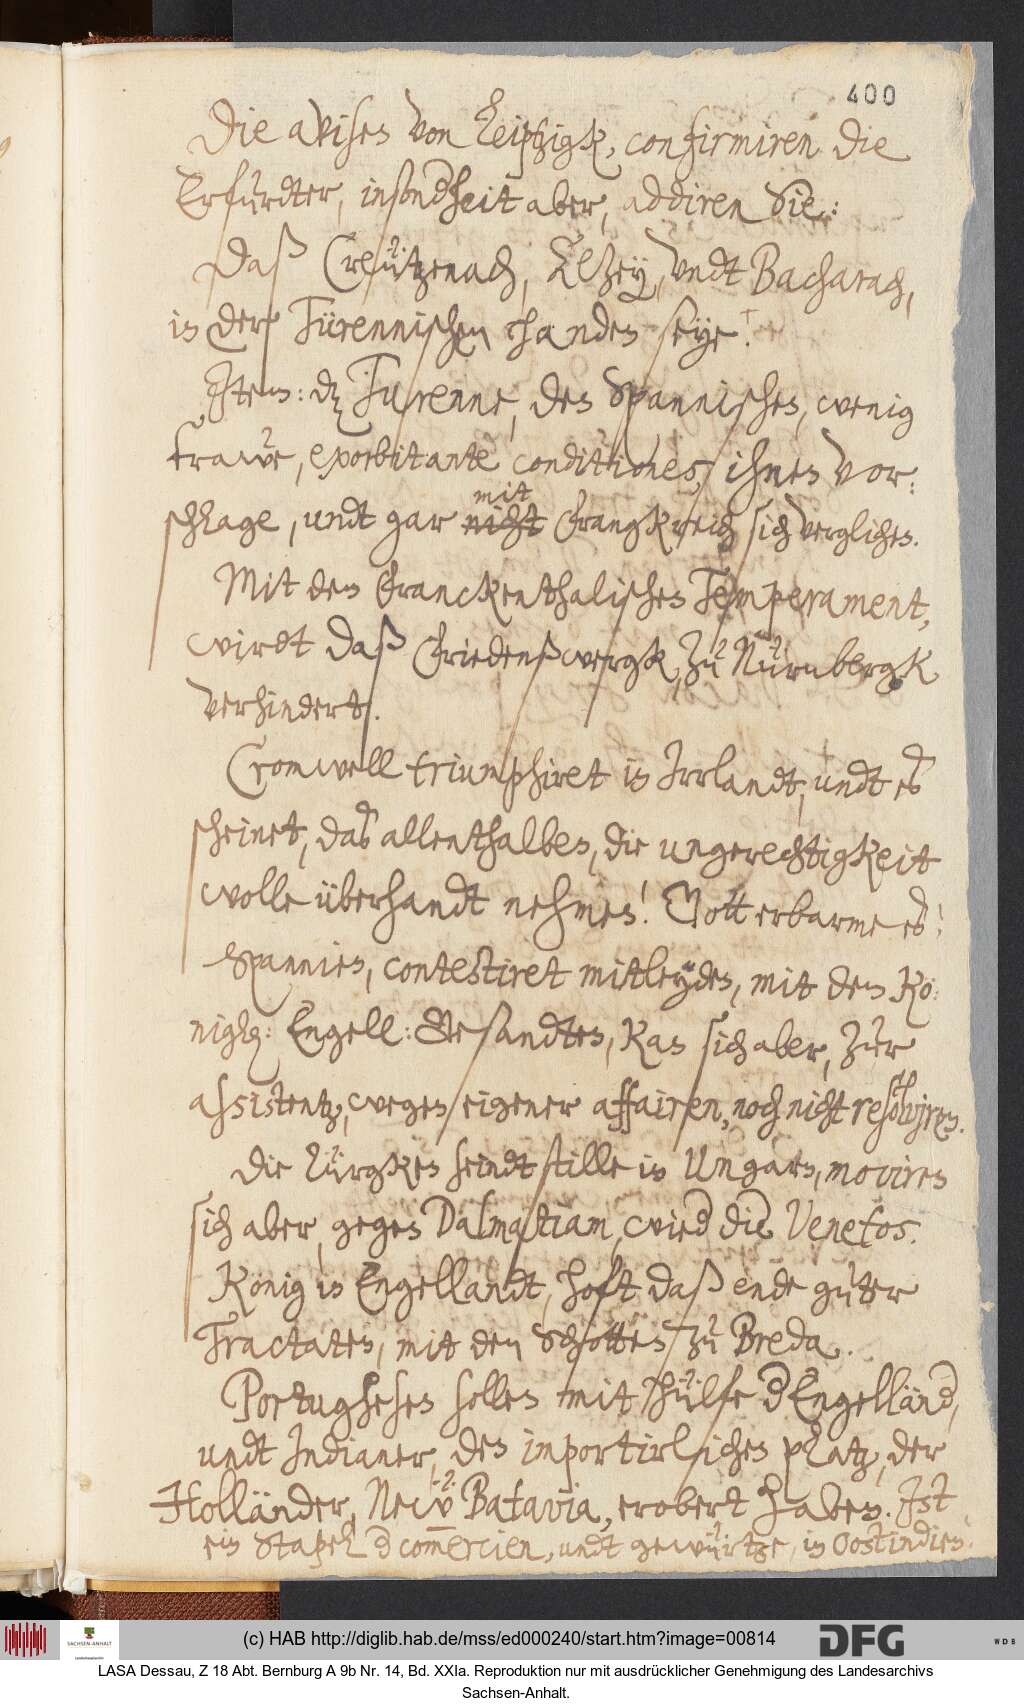 400
Die avisen von Leiptzigk, confirmiren die
Erfurdter, insond'heit aber, addiren Sie:
Daß Creützenach, Altzey, undt Bacharach,
in der Türennischen handen seye.
Item: dz Turenne, den Spannischen, wenig
trawe, exorbitante conditiones, ihnen vor:
schlage, undt gar nicht mit Frangkreich sich verglichen.
Mit dem Franckenthalischen Temperament,
wirdt daß Friedenßwergk, zu Nürnbergk
verhindert.
Cromwell triumphiret in Irrlandt, undt es
scheinet, das allenthalben, die ungerechtigkeit
wolle überhandt nehmen! Gott erbarme es!
Spannien, contestiret mitleyden, mit dem Kö:
nigl: Engell: Gesandten, kan sich aber, zur
assistentz, wegen eigener affairen, noch nicht resolviren.
Die Türgken seindt stille in Ungarn, moviren
sich aber, gegen Dalmatiam, wied' die Venetos.
König in Engellandt, hoft daß ende guter
Tractaten, mit den Schotten zu Breda.
Portughesen sollen mit hülfe d' Engelländ',
undt Indianer, den importirlichen platz, der
Holländer, New Batavia, erobert haben. Ist
ein Stapel d' com̄ercien, undt gewürtze, in Oostindien.
(c) HAB http://diglib.hab.de/mss/ed000240/start.htm?image=00814
DFG
WDB
SACHSEN-ANHALT
LASA Dessau, Z 18 Abt. Bernburg A 9b Nr. 14, Bd. XXIa. Reproduktion nur mit ausdrücklicher Genehmigung des Landesarchivs
Sachsen-Anhalt.